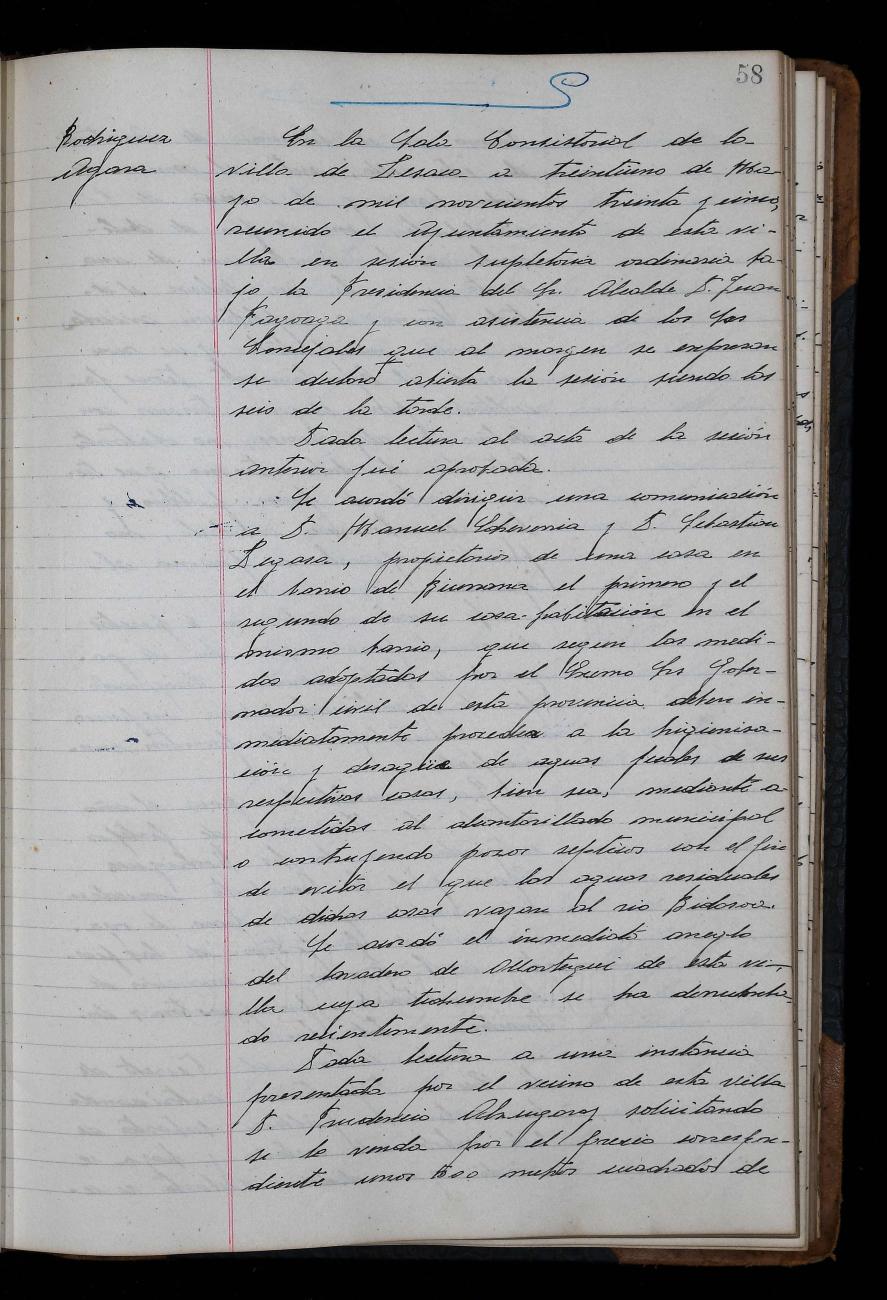 58
Rodriguez
Agara
En la Sala Consistorial de la
villa de Lesaca a treintiuno de Ma-
yo de mil novecientos treinta y cinco,
reunido el Ayuntamiento de esta vi-
lla en sesión supletoria ordinaria ba-
jo la Presidencia del Sr. Alcalde D. Juan
Fagoaga y con asistencia de los Sres
Concejales que al margen se expresan
se declaró abierta la sesión siendo las
seis de la tarde.
Dada lectura al acta de la sesión
anterior fué aprobada.
Se acordó dirigir una comunicación
a D. Manuel Echeverria y D. Sebastian
Legasa, propietarios de una casa en
el barrio de el primero y el
segundo de su casa-habitación en el
mismo barrio, que segun las medi-
das adoptadas por el Excmo Sr Gober-
nador civil de esta provincia deben in-
mediatamente proceder a la higieniza-
ción y desagüe de aguas fecales de sus
respectivas casas, bien sea, mediante a-
cometidas al alcantarillado municipal
o contruyendo pozos septicos con el fin
de evitar el que las aguas residuales
de dichas casas vayan al rio Bidasoa.
Se acordó el inmediato arreglo
del lavadero de de esta vi-
lla cuya techumbre se ha derrumba-
do recientemente.
Dada lectura a una instancia
presentada por el vecino de esta villa
D. Prudencio Alzugaray solicitando
se le venda por el precio correspon-
diente unos metros cuadrados de